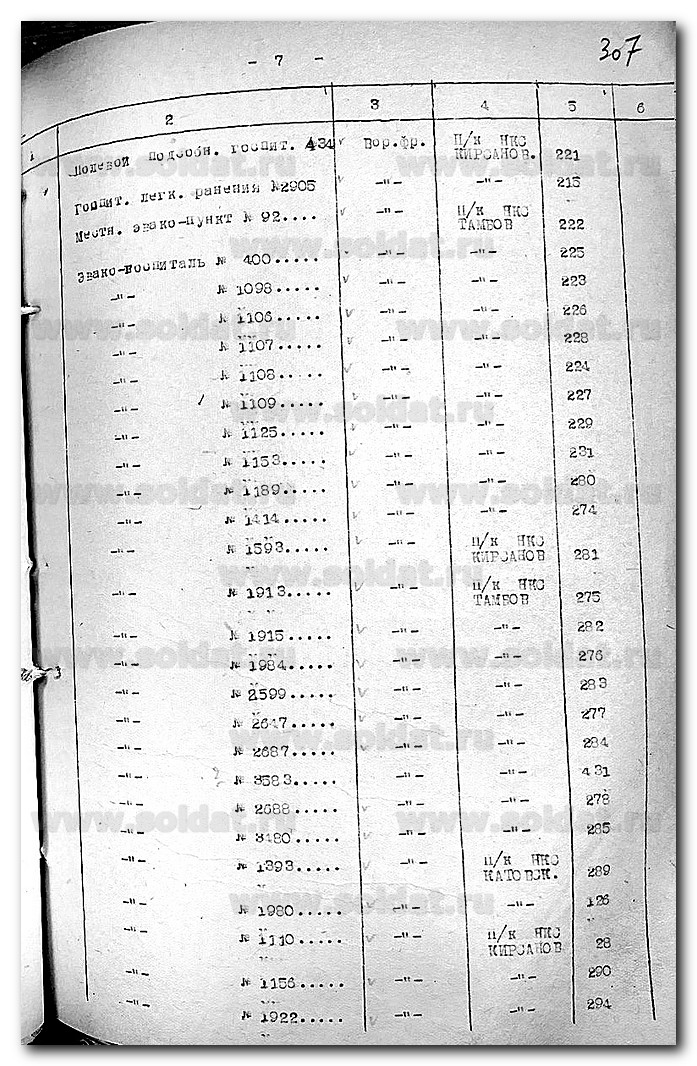 - 7 -
307
1 2 3 4 5 6
Полевой Подсобн. госпит. 434 Вор.фр. П/к НКС КИРСАНОВ. 221
Госпит. легк. ранения №2905 -"- -"- 215
Местн. эвако-пункт № 92.... -"- П/к НКС ТАМБОВ 222
Эвако-госпиталь № 400..... -"- -"- 225
-"- № 1098..... -"- -"- 223
-"- № 1106..... -"- -"- 226
-"- № 1107..... -"- -"- 228
-"- № 1108..... -"- -"- 224
-"- № 1109..... -"- -"- 227
-"- № 1125..... -"- -"- 229
-"- № 1153..... -"- -"- 231
-"- № 1189..... -"- -"- 280
-"- № 1414..... -"- -"- 274
-"- № 1593..... -"- п/к НКС КИРСАНОВ 281
-"- № 1913..... -"- п/к НКС ТАМБОВ 275
-"- № 1915..... -"- -"- 282
-"- № 1984..... -"- -"- 276
-"- № 2599..... -"- -"- 283
-"- № 2647..... -"- -"- 277
-"- № 2687..... -"- -"- 284
-"- № 3583..... -"- -"- 431
-"- № 2688..... -"- -"- 278
-"- № 3480..... -"- -"- 285
-"- № 1393..... -"- п/к НКС КАТОВСК. 289
-"- № 1980..... -"- -"- 126
-"- № 1110..... -"- п/к НКС КИРСАНОВ 28
-"- № 1156..... -"- -"- 290
-"- № 1922..... -"- -"- 294
www.soldat.ru